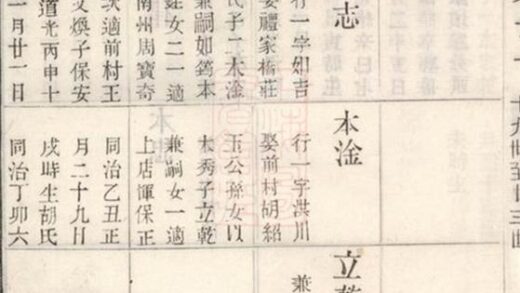 十九世至廿三世
志
行一字如吉
娶禮家橋莊
氏子二木淦
兼嗣如筠本
銈女二一適
南州周寶奇
次適前村王
文煥子保安
道光丙申十
一月廿一日
本淦
行一字洪川
娶前村胡紹
玉公孫女以
木秀子立乾
兼嗣女一適
上店惲保正
同治乙丑正
月二十九日
戌時生胡氏
同治丁卯六
立乾
兼